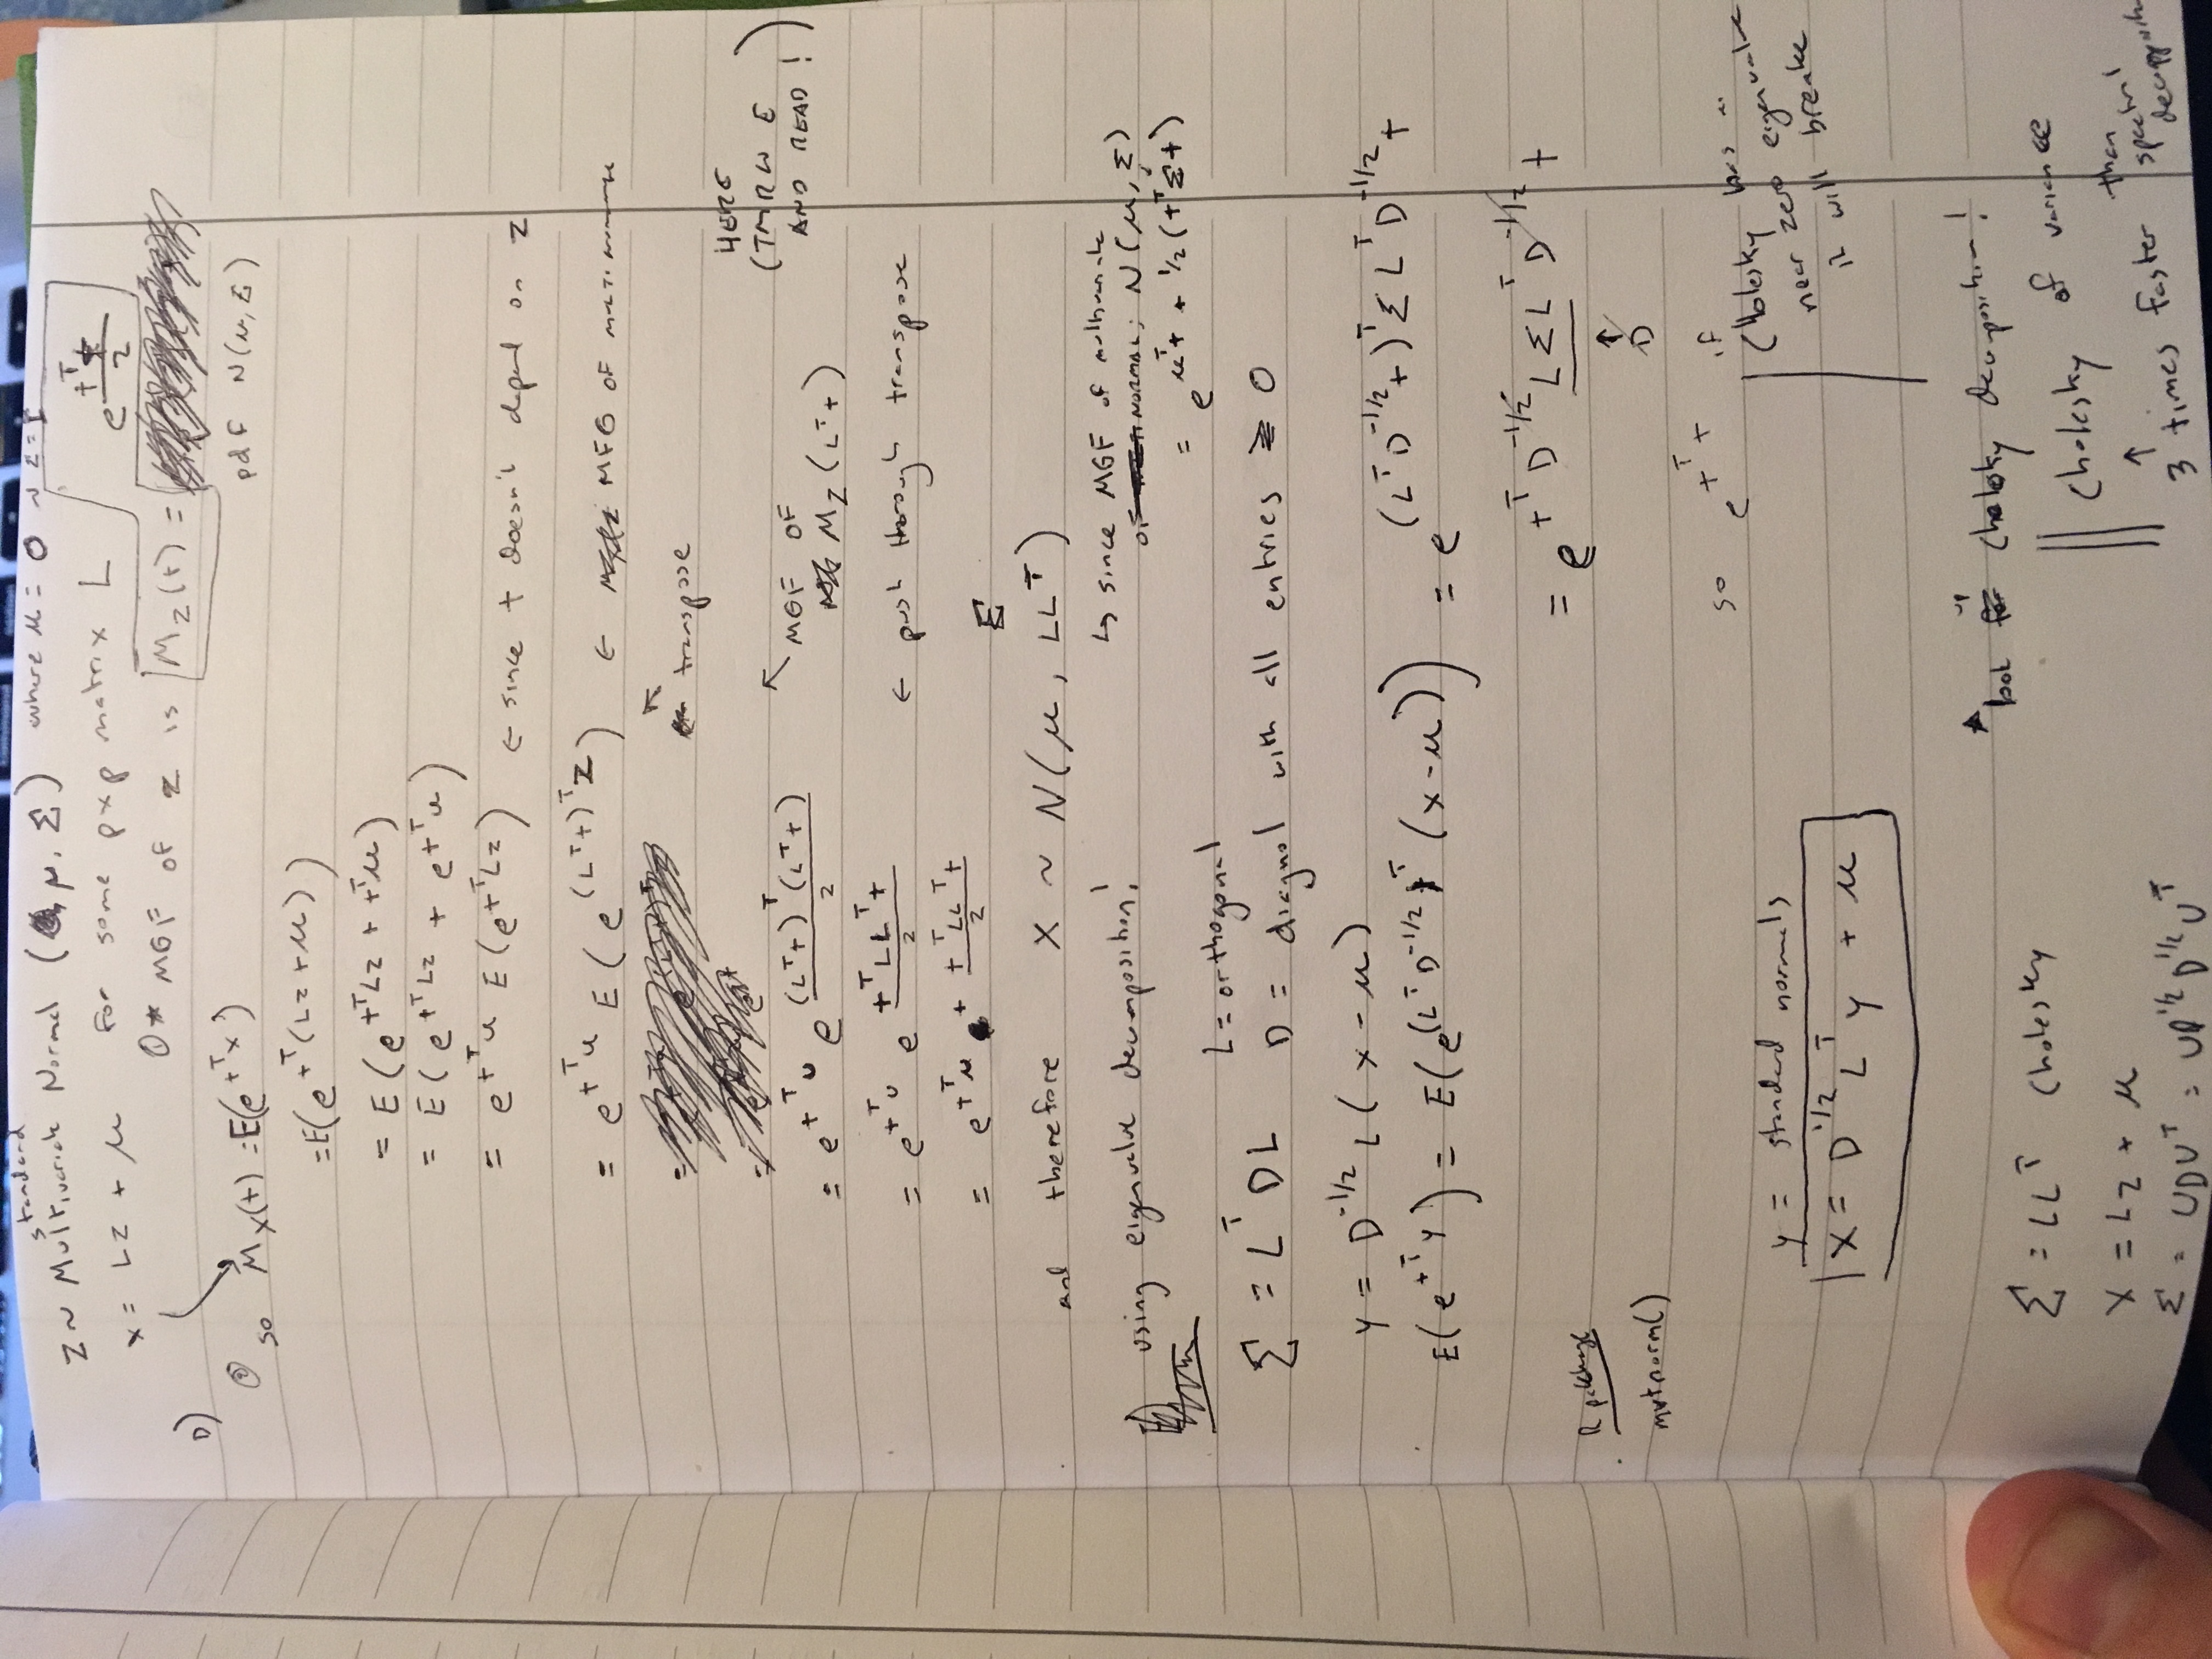 standard
Z ~ Multivariate Normal ( μ, Σ) where μ = 0 ~ Σ = I
x = Lz + μ for some pxp matrix L
① * MGF of z is M_Z(t) = e^{t^T t / 2}
pdf N(μ, Σ)
D)
② so M_X(t) = E(e^{t^T x})
= E(e^{t^T (Lz + μ)})
= E(e^{t^T Lz + t^T μ})
= E(e^{t^T Lz} + e^{t^T μ})
= e^{t^T μ} E(e^{t^T Lz}) ← since t doesn't depend on z
= e^{t^T μ} E(e^{(L^T t)^T z}) ← MFG OF
↖ transpose
HERE
(TMRW E
AND READ!)
= e^{t^T μ} e^{(L^T t)^T (L^T t) / 2} ↖ MGF OF
M_Z(L^T t)
= e^{t^T μ} e^{t^T L L^T t / 2} ← push through transpose
= e^{t^T μ + t^T L L^T t / 2}
Σ
and therefore X ~ N(μ, LL^T)
↳ since MGF of multivariate
OF NORMAL; N(μ, Σ)
= e^{μ^T t + 1/2 (t^T Σ t)}
using eigenvalue decomposition!
Σ = L^T DL L = orthogonal
D = diagnol with all entries ≥ 0
y = D^{-1/2} L(x - μ)
E(e^{t^T y}) = E(e^{(L^T D^{-1/2} t)^T (x - μ)}) = e^{(L^T D^{-1/2} t)^T Σ L^T D^{-1/2} t}
= e^{t^T D^{-1/2} L Σ L^T D^{-1/2} t}
↑
D
R package
mvtnorm()
so e^{t^T t}
if
Cholesky has
near zero eigenvalue
it will breake
y = standard normals
x = D^{1/2} L^T y + μ
* look up Cholesky decomposition!
Σ = LL^T Cholesky
Cholesky of variance
↑
3 times faster than
spectral
decomposition
X = Lz + μ
Σ = UDU^T = UD^{1/2} D^{1/2} U^T